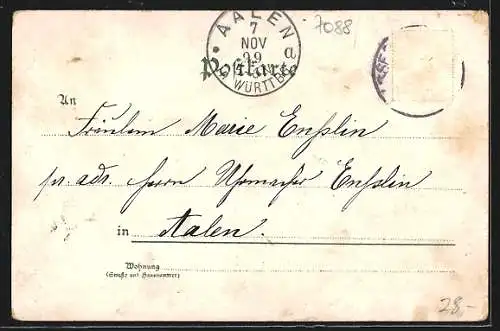 AALEN
7
NOV
99
WÜRTTBG
7088
Postkarte
An
Fräulein Marie Enßlin
pr. adr. Herrn Uhrmacher Enßlin
in Aalen.
Wohnung
(Straße und Hausnummer)
28,-